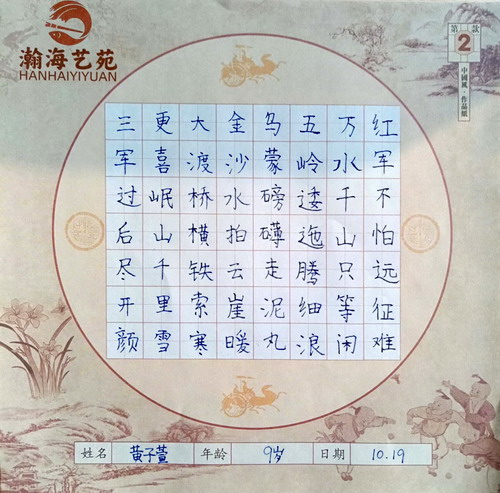 瀚海艺苑
HANHAIYIYUAN
第二款
2
中國風·作品紙
红军不怕远征难
万水千山只等闲
五岭逶迤腾细浪
乌蒙磅礴走泥丸
金沙水拍云崖暖
大渡桥横铁索寒
更喜岷山千里雪
三军过后尽开颜
姓名 黄子萱 年龄 9岁 日期 10.19